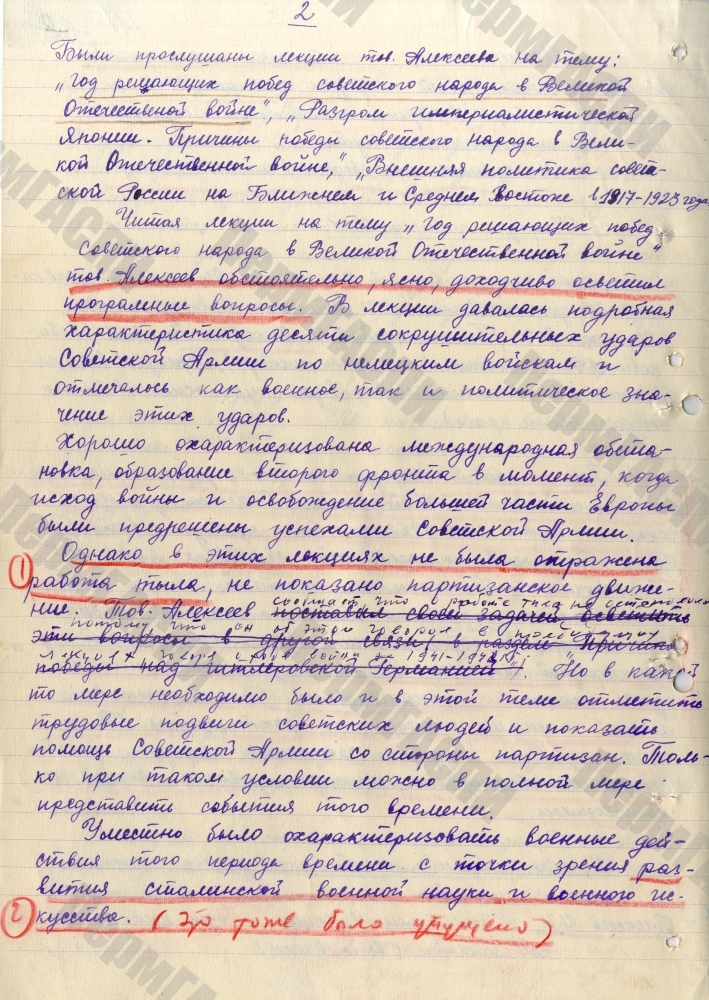 2
Были прослушаны лекции тов. Алексеева на тему:
„Год решающих побед советского народа в Великой
Отечественой войне", „Разгром империалистической
Японии. Причины победы советского народа в Вели-
кой Отечественной войне," „Внешняя политика совет-
ской России на Ближнем и Среднем Востоке в 1917-1923 года
Читая лекции на тему „Год решающих побед
Советского народа в Великой Отечественной войне"
тов. Алексеев обстоятельно, ясно, доходчиво осветил
програмные вопросы. В лекции давалась подробная
характеристика десяти сокрушительных ударов
Советской Армии по немецким войскам и
отмечалось как военное, так и политическое зна-
чение этих ударов.
Хорошо охарактеризована международная обста-
новка, образование второго фронта в момент, когда
исход войны и освобождение большей части Европы
были предрешены успехами Советской Армии.
Однако в этих лекциях не была отражена
1 работа тыла, не показано партизанское движе-
сообщает, что работе тыла не остановился
ние. Тов. Алексеев поставил своей задачей осветить
потому что он об этом говорил в предыдущих
эти вопросы в другой связи, в разделе "Причины
лекциях говоря о войне 1941-1942
победы над гитлеровской Германией". Но в какой
то мере необходимо было и в этой теме отметить
трудовые подвиги советских людей и показать
помощь Советской Армии со стороны партизан. Толь-
ко при таком условии можно в полной мере
представить события того времени.
Уместно было охарактеризовать военные дей-
ствия того периода времени с точки зрения раз-
вития сталинской военной науки и военного ис-
2 кусства. (Это тоже было упущено)
ПермГАСПИ